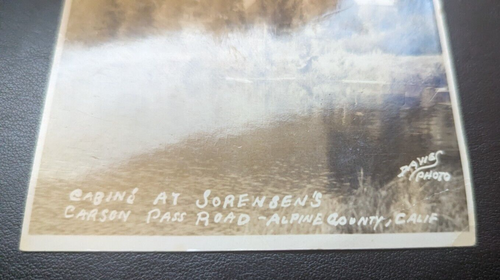 DAWES
PHOTO
CABINS AT SORENSEN'S
CARSON PASS ROAD - ALPINE COUNTY, CALIF